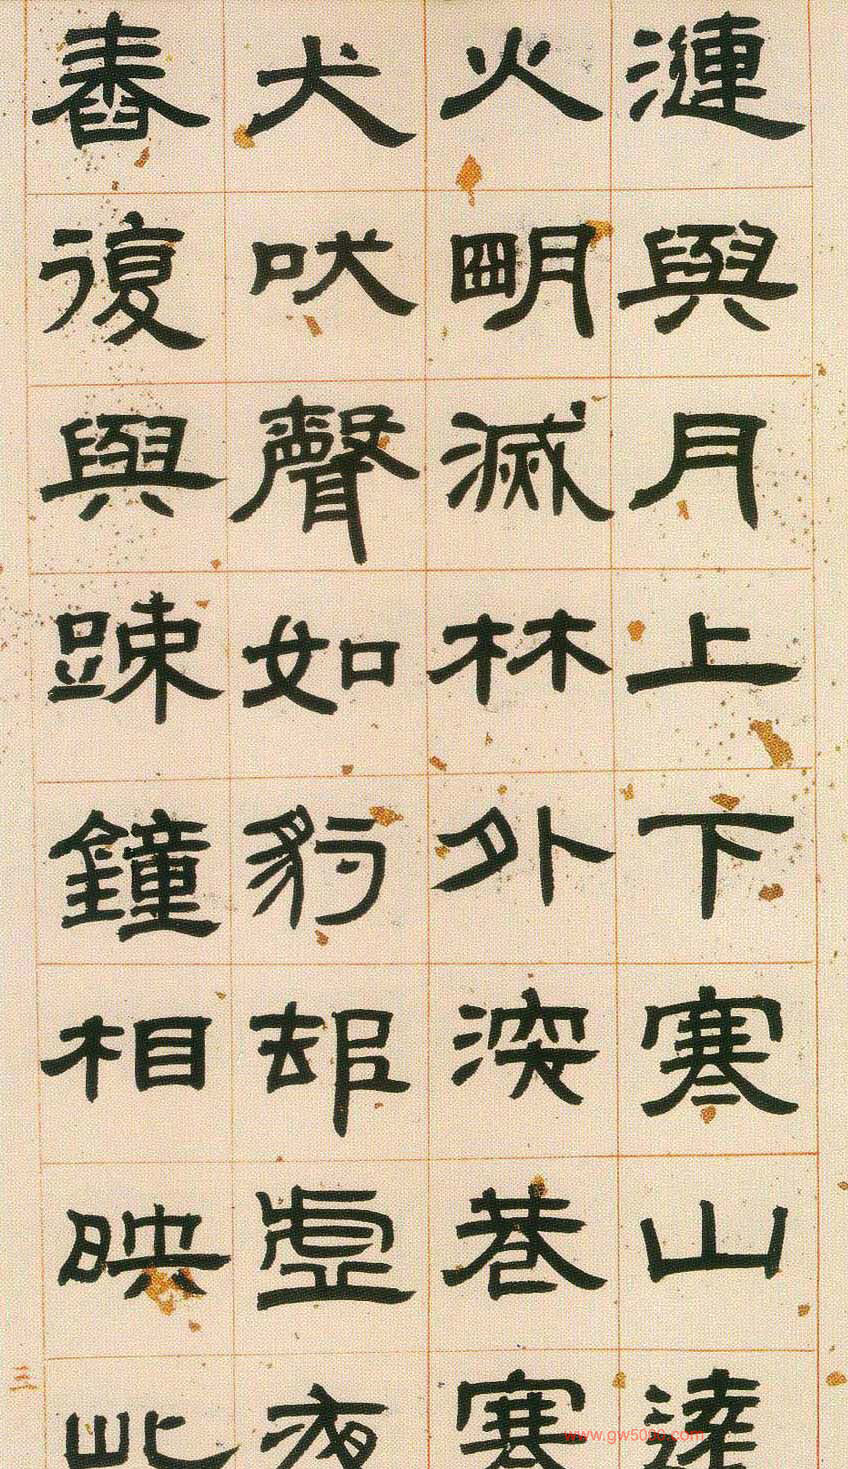 漣與月上下寒山遠
火朙滅林外深巷寒
犬吠聲如豹村虛夜
舂復與疎鐘相映此
三
www.gw5000.com